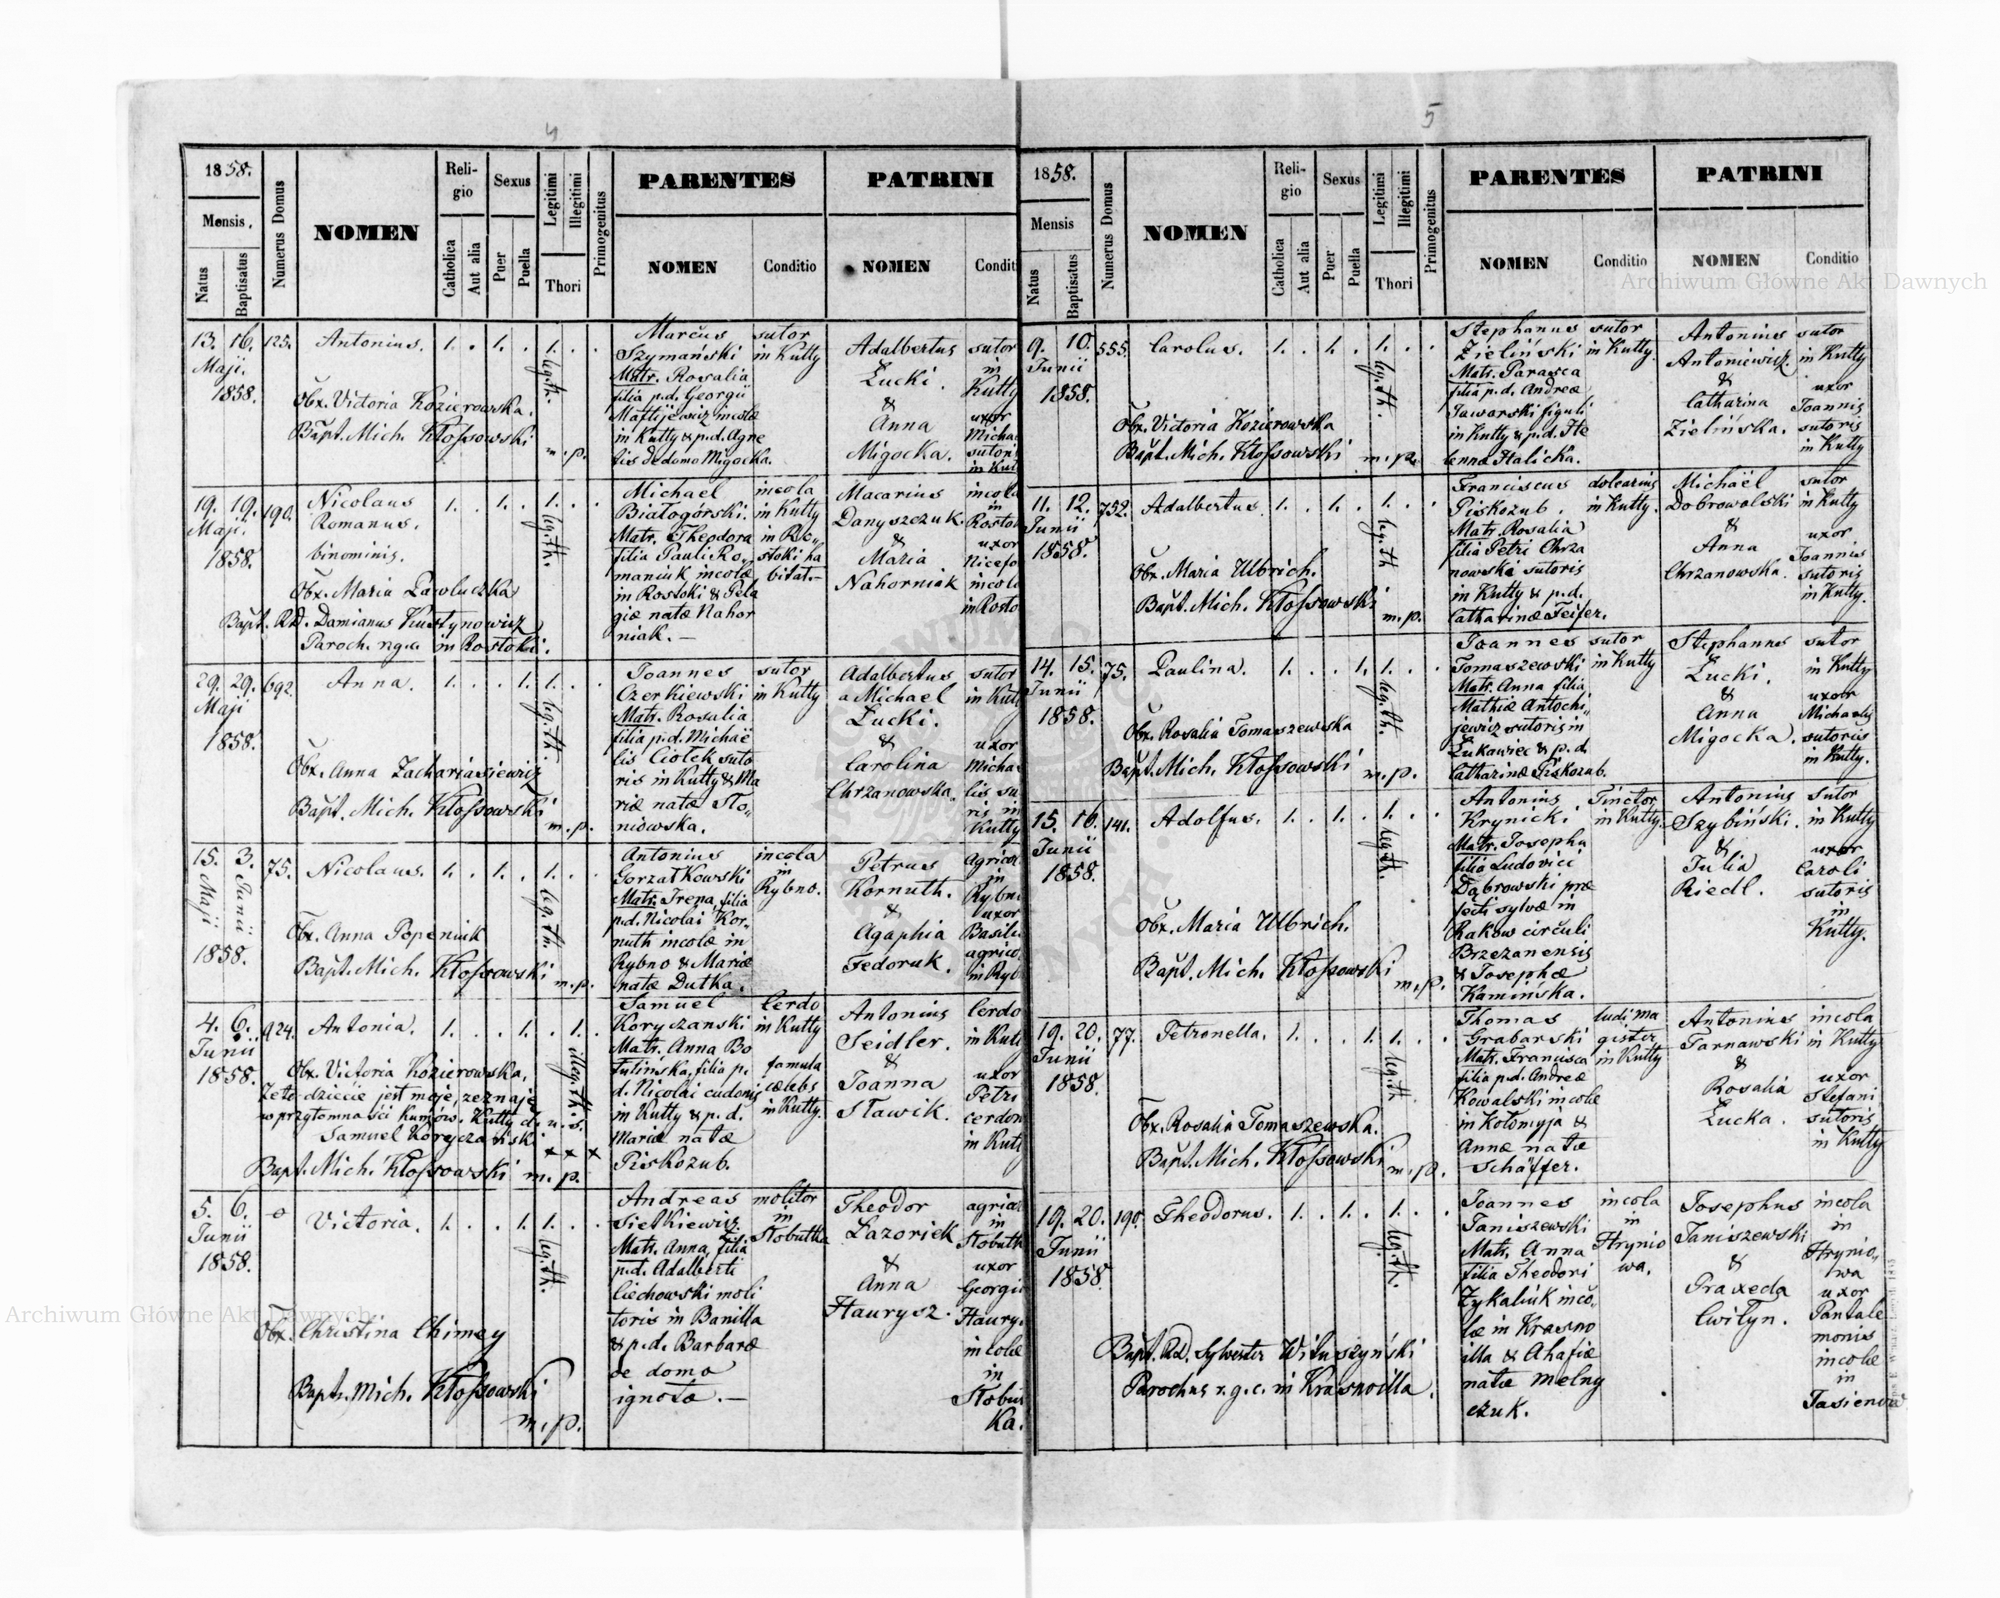 4
1858.
Mensis.
Natus
Baptisatus
Numerus Domus
NOMEN
Religio
Catholica
Aut alia
Sexus
Puer
Puella
Legitimi
Illegitimi
Thori
Primogenitus
PARENTES
NOMEN
Conditio
PATRINI
NOMEN
Condit
13. 16. 125. Antonius. 1. . 1. . 1. . .
Maji.
1858.
leg. th.
Obx. Victoria Kozierowska.
Bapt. Mich. Kłossowski m. p.
Marcus
Szymański
Matr. Rosalia
filia p. d. Georgii
Mattijewicz incolæ
in Kutty & p. d. Agne
tis de domo Migocka.
sutor
in Kutty
Adalbertus
Łucki.
&
Anna
Migocka.
sutor
in
Kutty
uxor
Michae
sutoris
in Kut
19. 19. 190. Nicolaus 1. . 1. . 1. . .
Maji. Romanus.
1858. binominis.
leg. th.
Obx. Maria Pawluczka
Bapt. RD. Damianus Kustynowicz
Paroch. r. g. c. in Rostoki.
Michael
Białogórski.
Matr. Theodora
filia Pauli Ro„
maniuk incolæ
in Rostoki & Pela
giæ natæ Nahor
niak. —
incola
in Kutty
in Ro„
stoki ha
bitat.—
Macarius
Danyszczuk.
&
Maria
Nahorniak
incola
in
Rostok
uxor
Nicefo
incolæ
in Rosto
29. 29. 692. Anna. 1. . . 1. 1. . .
Maji
1858.
leg. th.
Obx. Anna Zachariasiewicz
Bapt. Mich. Kłossowski m. p.
Joannes
Czerkiewski
Matr. Rosalia
filia p. d. Michaë
lis Ciołek suto
ris in Kutty & Ma
riæ natæ Sło„
niowska.
sutor
in Kutty
Adalbertus
a Michael
Łucki.
&
Carolina
Chrzanowska.
sutor
in Kutt
uxor
Michae
lis su
ris in
Kutty
15. 3. 75. Nicolaus. 1. . 1. . 1. . .
Maji Junii
1858.
leg. th.
Obx. Anna Popeniuk
Bapt. Mich. Kłossowski m. p.
Antonius
Gorzałkowski
Matr. Irena, filia
p. d. Nicolai Kor„
nuth incolæ in
Rybno & Mariæ
natæ Dutka.
incola
in
Rybno.
Petrus
Kornuth.
&
Agaphia
Fedoruk.
agrico
in
Rybno
uxor
Basilii
agrico
in Ryb
4. 6. 924. Antonia. 1. . . 1. . 1. .
Junii
1858.
illeg. th.
Obx. Victoria Kozierowska,
Że to dziecie jest moje, zeznaję
w przytomności Kumów. Kutty d. u. s.
Samuel Koryczański x x x
Bapt. Mich. Kłossowski m. p.
Samuel
Koryczanski
Matr. Anna Bo
tulińska, filia p.
d. Nicolai cudonis
in Kutty & p. d.
Mariæ natæ
Piskozub.
Cerdo
in Kutty
famula
cælebs
in Kutty.
Antonius
Seidler.
&
Joanna
Sławik.
Cerdo
in Kutt
uxor
Petri
cerdon
in Kutt
5. 6. o Victoria. 1. . . 1. 1. . .
Junii
1858.
leg. th.
Obx. Christina Chimey
Bapt. Mich. Kłossowski
m. p.
Andreas
Sietkiewicz.
Matr. Anna, filia
p. d. Adalberti
Ciechowski moli
toris in Banilla
& p. d. Barbaræ
de domo
ignota. —
molitor
in
Słobutka
Theodor
Łazoriek
&
Anna
Haurysz.
agrico
in
Słobutk
uxor
Georgii
Haury.
incolæ
in
Słobut
Ka.
5
1858.
Mensis
Natus
Baptisatus
Numerus Domus
NOMEN
Religio
Catholica
Aut alia
Sexus
Puer
Puella
Legitimi
Illegitimi
Thori
Primogenitus
PARENTES
NOMEN
Conditio
PATRINI
NOMEN
Conditio
9. 10. 555. Carolus. 1. . 1. . 1. . .
Junii
1858.
leg. th.
Obx. Victoria Kozierowska
Bapt. Mich. Kłossowski m. p.
Stephanus
Zieliński
Matr. Parasca
filia p. d. Andreæ
Jaworski figuli
in Kutty & p. d. He
lenna Halicka.
sutor
in Kutty.
Antonius
Antoniewicz.
&
Catharina
Zielińska.
sutor
in Kutty
uxor
Joannis
sutoris
in Kutty
11. 12. 752. Adalbertus. 1. . 1. . 1. . .
Junii
1858.
leg. th
Obx. Maria Ulbrich.
Bapt. Mich. Kłossowski m. p.
Franciscus
Piskozub.
Matr. Rosalia
filia Petri Chrza
nowski sutoris
in Kutty & p. d.
Catharinæ Feifer.
dolearius
in Kutty.
Michaël
Dobrowolski
&
Anna
Chrzanowska.
sutor
in Kutty
uxor
Joannis
sutoris
in Kutty.
14. 15. 75. Paulina. 1. . . 1. 1. . .
Junii
1858.
leg. th.
Obx. Rosalia Tomaszewska
Bapt. Mich. Kłossowski m. p.
Joannes
Tomaszewski
Matr. Anna filia
Mathiæ Antochi„
jewicz sutoris in
Łukawiec & p. d.
Catharinæ Piskozub.
sutor
in Kutty
Stephanus
Łucki.
&
Anna
Migocka.
sutor
in Kutty
uxor
Michaelis
sutoris
in Kutty.
15. 16. 141. Adolfus. 1. . 1. . 1. . .
Junii
1858.
leg. th.
Obx. Maria Ulbrich.
Bapt. Mich. Kłossowski m. p.
Antonius
Krynicki.
Matr. Josepha
filia Ludovici
Dąbrowski præ
fecti sylvæ in
Raków circuli
Brzezanensis
& Josephæ
Kamińska.
Tinctor
in Kutty.
Antonius
Szybiński.
&
Julia
Riedl.
sutor
in Kutty
uxor
Caroli
sutoris
in
Kutty.
19. 20. 77. Petronella. 1. . . 1. 1. . .
Junii
1858.
leg. th
Obx. Rosalia Tomaszewska.
Bapt. Mich. Kłossowski m. p.
Thomas
Grabarski
Matr. Francisca
filia p. d. Andreæ
Kowalski incolæ
in Kołomyja &
Annæ natæ
Schäffer.
ludi ma
gister
in Kutty
Antonius
Tarnawski
&
Rosalia
Łucka.
incola
in Kutty
uxor
Stefani
sutoris
in Kutty
19. 20. 190. Theodorus. 1. . 1. . 1. . .
Junii
1858
leg. th.
Bapt. Rd. Sylvester Wituszyński
Parochus r. g. c. in Krasnoilla.
Joannes
Janiszewski
Matr. Anna
filia Theodori
Zykaliuk inco„
læ in Krasno
illa & Ahafiæ
natæ Melny
czuk.
incola
in
Hrynio
wa.
Josephus
Janiszewski
&
Praxeda
Cwilyn.
incola
in
Hrynio„
wa
uxor
Pantale
monis
incolæ
in
Jasienow
Archiwum Główne Akt Dawnych
Archiwum Główne Akt Dawnych